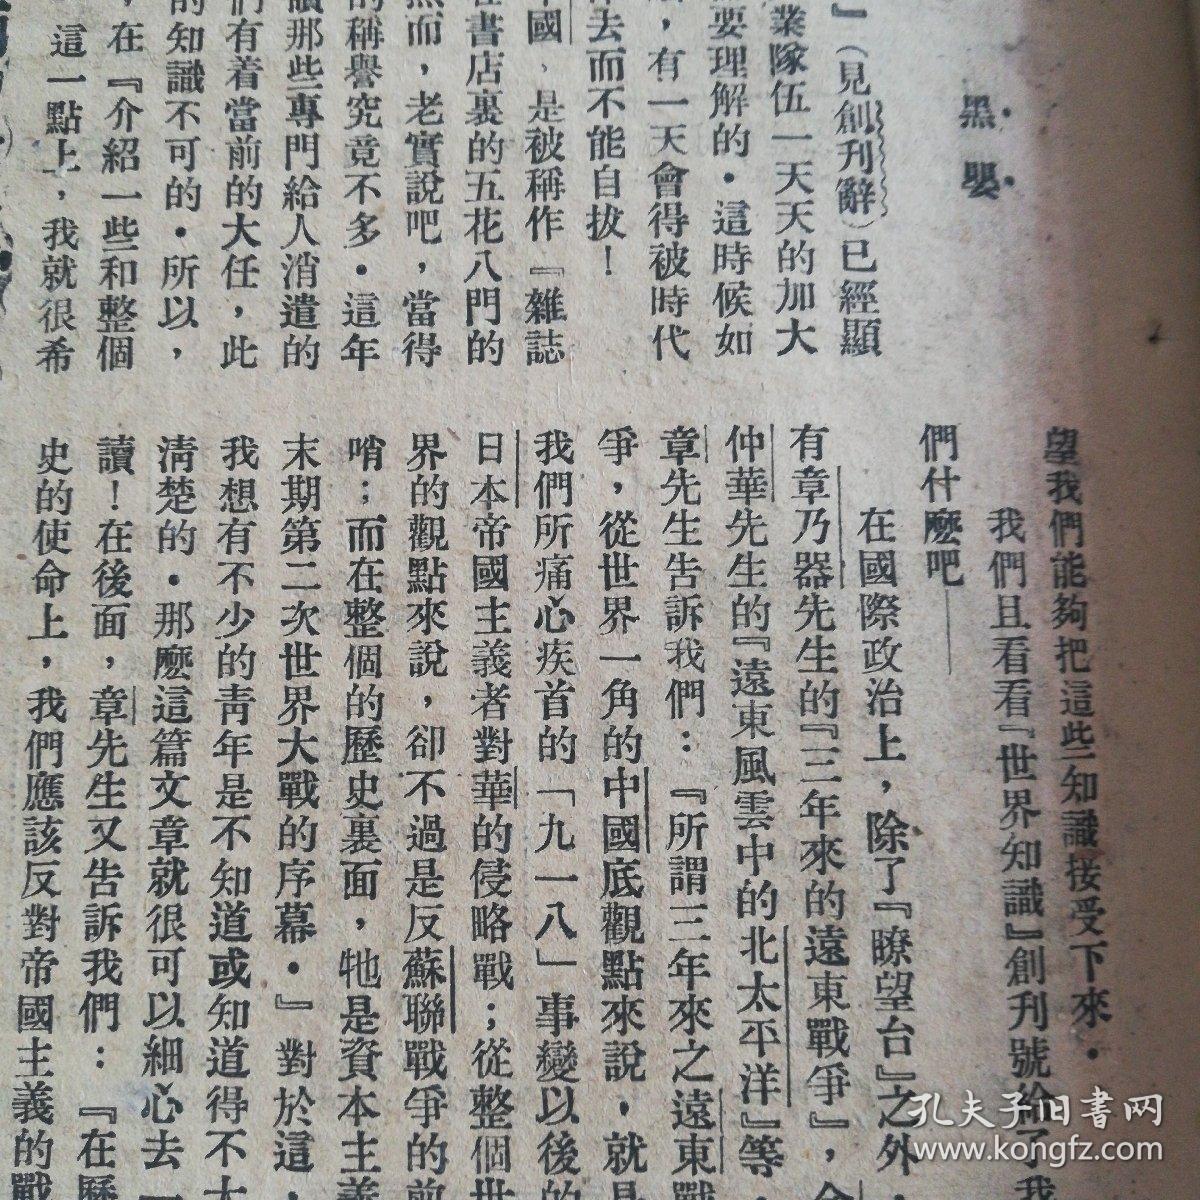 黑嬰
』(見創刊辭)已經顯
業隊伍一天天的加大
要理解的．這時候如
，有一天會得被時代
去而不能自拔！
國，是被稱作『雜誌
書店裏的五花八門的
然而，老實說吧，當得
的稱譽究竟不多．這年
讀那些專門給人消遣的
們有着當前的大任，此
的知識不可的．所以，
，在『介紹一些和整個
這一點上，我就很希
望我們能夠把這些知識接受下來．
我們且看看『世界知識』創刊號給了我
們什麽吧——
在國際政治上，除了『瞭望台』之外，
有章乃器先生的『三年來的遠東戰爭』，金
仲華先生的『遠東風雲中的北太平洋』等．
章先生告訴我們：『所謂三年來之遠東戰
爭，從世界一角的中國底觀點來說，就是
我們所痛心疾首的「九一八」事變以後的
日本帝國主義者對華的侵略戰；從整個世
界的觀點來說，卻不過是反蘇聯戰爭的前
哨；而在整個的歷史裏面，牠是資本主義
末期第二次世界大戰的序幕．』對於這，
我想有不少的青年是不知道或知道得不大
清楚的．那麽這篇文章就很可以細心去一
讀！在後面，章先生又告訴我們：『在歷
史的使命上，我們應該反對帝國主義的戰
孔夫子旧书网
www.kongfz.com